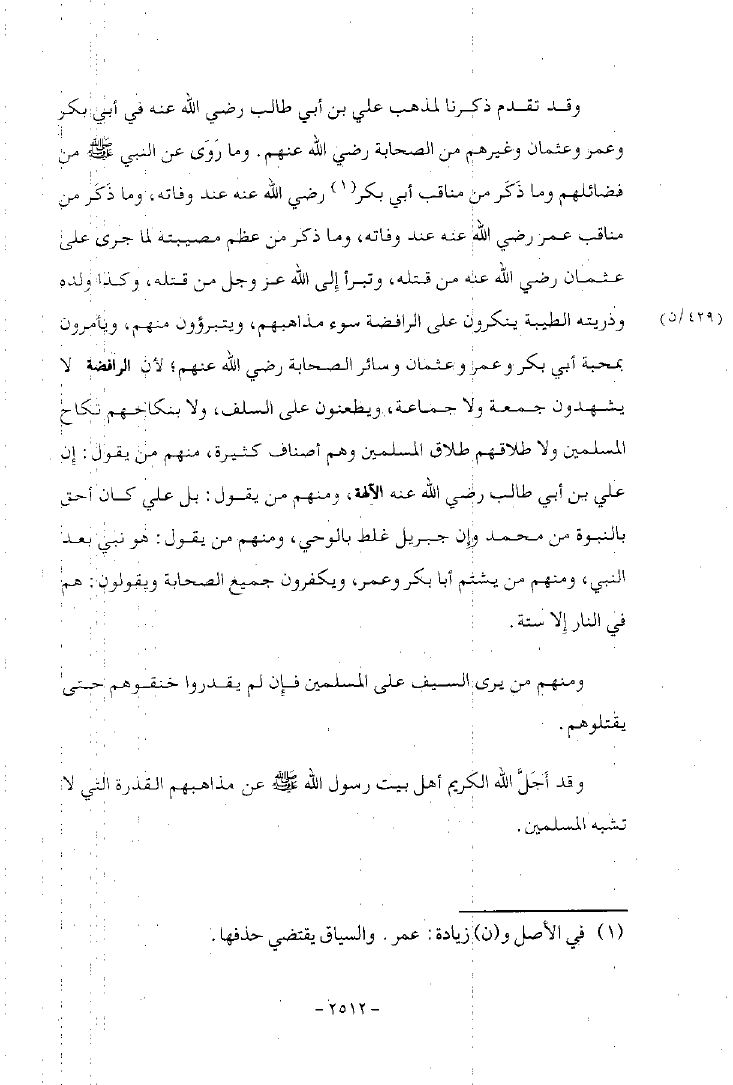 وقد تقدم ذكرنا لمذهب علي بن أبي طالب رضي الله عنه في أبي بكر
وعمر وعثمان وغيرهم من الصحابة رضي الله عنهم. وما رَوَى عن النبي ﷺ من
فضائلهم وما ذَكَر من مناقب أبي بكر(١) رضي الله عنه عند وفاته، وما ذَكَر من
مناقب عمر رضي الله عنه عند وفاته، وما ذكر من عظم مصيبته لما جرى على
عثمان رضي الله عنه من قتله، وتبرأ إلى الله عز وجل من قتله، وكذا ولده
وذريته الطيبة ينكرون على الرافضة سوء مذاهبهم، ويتبرؤون منهم، ويأمرون
(٤٢٩/ن)
بمحبة أبي بكر وعمر وعثمان وسائر الصحابة رضي الله عنهم؛ لأن الرافضة لا
يشهدون جمعة ولا جماعة، ويطعنون على السلف، ولا بنكاحهم نكاح
المسلمين ولا طلاقهم طلاق المسلمين وهم أصناف كثيرة، منهم من يقول: إن
علي بن أبي طالب رضي الله عنه الآلهة، ومنهم من يقول: بل علي كان أحق
بالنبوة من محمد وإن جبريل غلط بالوحي، ومنهم من يقول: هو نبي بعد
النبي، ومنهم من يشتم أبا بكر وعمر، ويكفرون جميع الصحابة ويقولون: هم
في النار إلا ستة.
ومنهم من يرى السيف على المسلمين فإن لم يقدروا خنقوهم حتى
يقتلوهم.
وقد أَجَلَّ الله الكريم أهل بيت رسول الله ﷺ عن مذاهبهم القذرة التي لا
تشبه المسلمين.
(١) في الأصل و(ن) زيادة: عمر. والسياق يقتضي حذفها.
-٢٥١٢-